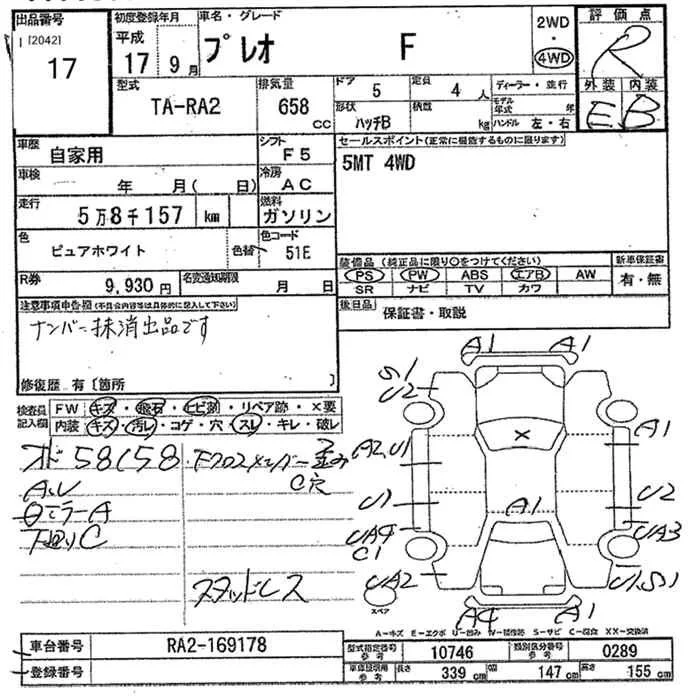 出品番号 初度登録年月 車名・グレード 2WD 評価点
[2042] 平成 ・ R
17 17 9月 プレオ F 4WD
型式 排気量 ドア 5 定員 4 人 ディーラー・並行 外装 内装
TA-RA2 658 cc 形状 ハッチB 積載 kg モデル年式 年 E B
ハンドル 左・右
車歴 自家用 シフト F5 セールスポイント(正常に機能するものに限ります)
車検 年 月( 日) 冷房 AC 5MT 4WD
走行 5万8千157 km 燃料 ガソリン
色 ピュアホワイト 色替 色コード 51E 装備品 (純正品に限り○をつけてください) 新車保証書
R券 9,930円 名変通知期限 月 日 PS ・ PW ・ ABS ・ エアB ・ AW 有・無
SR ナビ TV カワ
注意事項申告欄(不具合内容等は具体的に記入して下さい) 後日品 保証書・取説
ナンバー抹消出品です
修復歴 有〔箇所 〕
検査員記入欄 FW キズ・飛石・ヒビ割・リペア跡・×要
内装 キズ・汚レ・コゲ・穴・スレ・キレ・破レ
A1 A1
S1
U2
オド58158 Fクロスメンバー歪み A2,U1 × A1
C穴
U1 A1 U2
ミラーA
下廻りC UA4 UA3
C1
スタッドレス UA2 U1,S1
スペア A4 A1
A-キズ E-エクボ U-凹み W-補修跡 S-サビ C-腐食 XX-交換済
車台番号 RA2-169178 型式指定番号 参考 10746 類別区分番号 参考 0289
登録番号 車庫証明用 参考 長さ 339 cm 幅 147 cm 高さ 155 cm